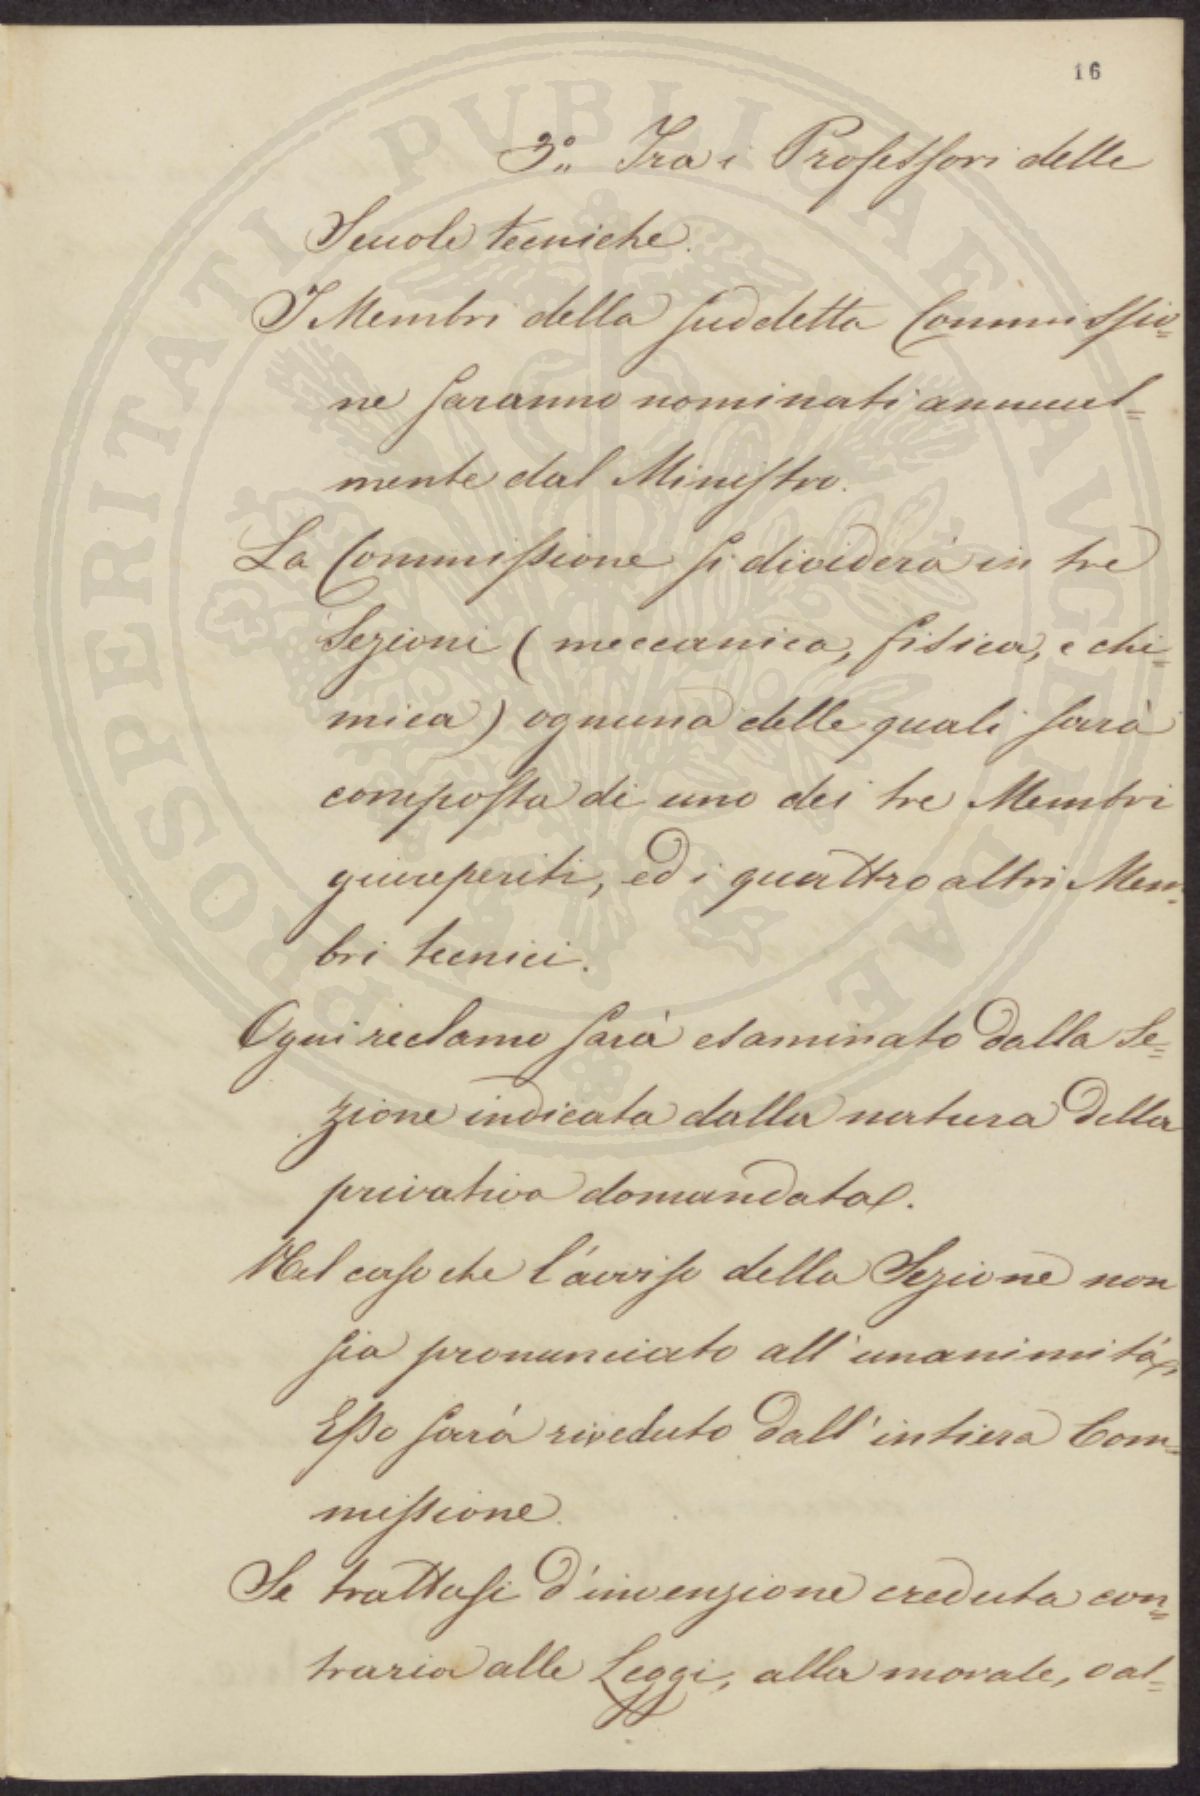 16
3.° Tra i Professori delle
Scuole tecniche.
I Membri della suddetta Commissio=
ne saranno nominati annual=
mente dal Ministro.
La Commissione si dividerà in tre
Sezioni (meccanica, fisica, e chi=
mica) ognuna delle quali sarà
composta di uno dei tre Membri
giureperiti, ed i quattro altri Mem=
bri tecnici.
Ogni reclamo sarà esaminato dalla Se=
zione indicata dalla natura della
privativa domandata.
Nel caso che l'avviso della Sezione non
sia pronunciato all'unanimità,
Esso sarà riveduto dall'intiera Com=
missione.
Se trattasi d'invenzione creduta con=
traria alle Leggi, alla morale, o al=
PROSPERITATI PVBLICAE AVGENDAE